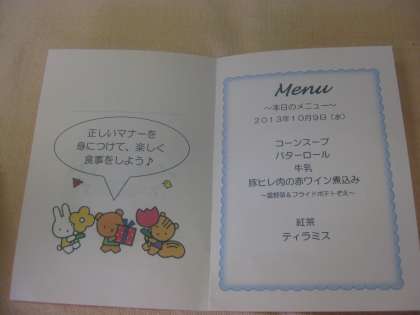 正しいマナーを
身につけて、楽しく
食事をしよう♪
Menu
～本日のメニュー～
2013年10月9日（水）
コーンスープ
バターロール
牛乳
豚ヒレ肉の赤ワイン煮込み
～温野菜＆フライドポテトそえ～
紅茶
ティラミス